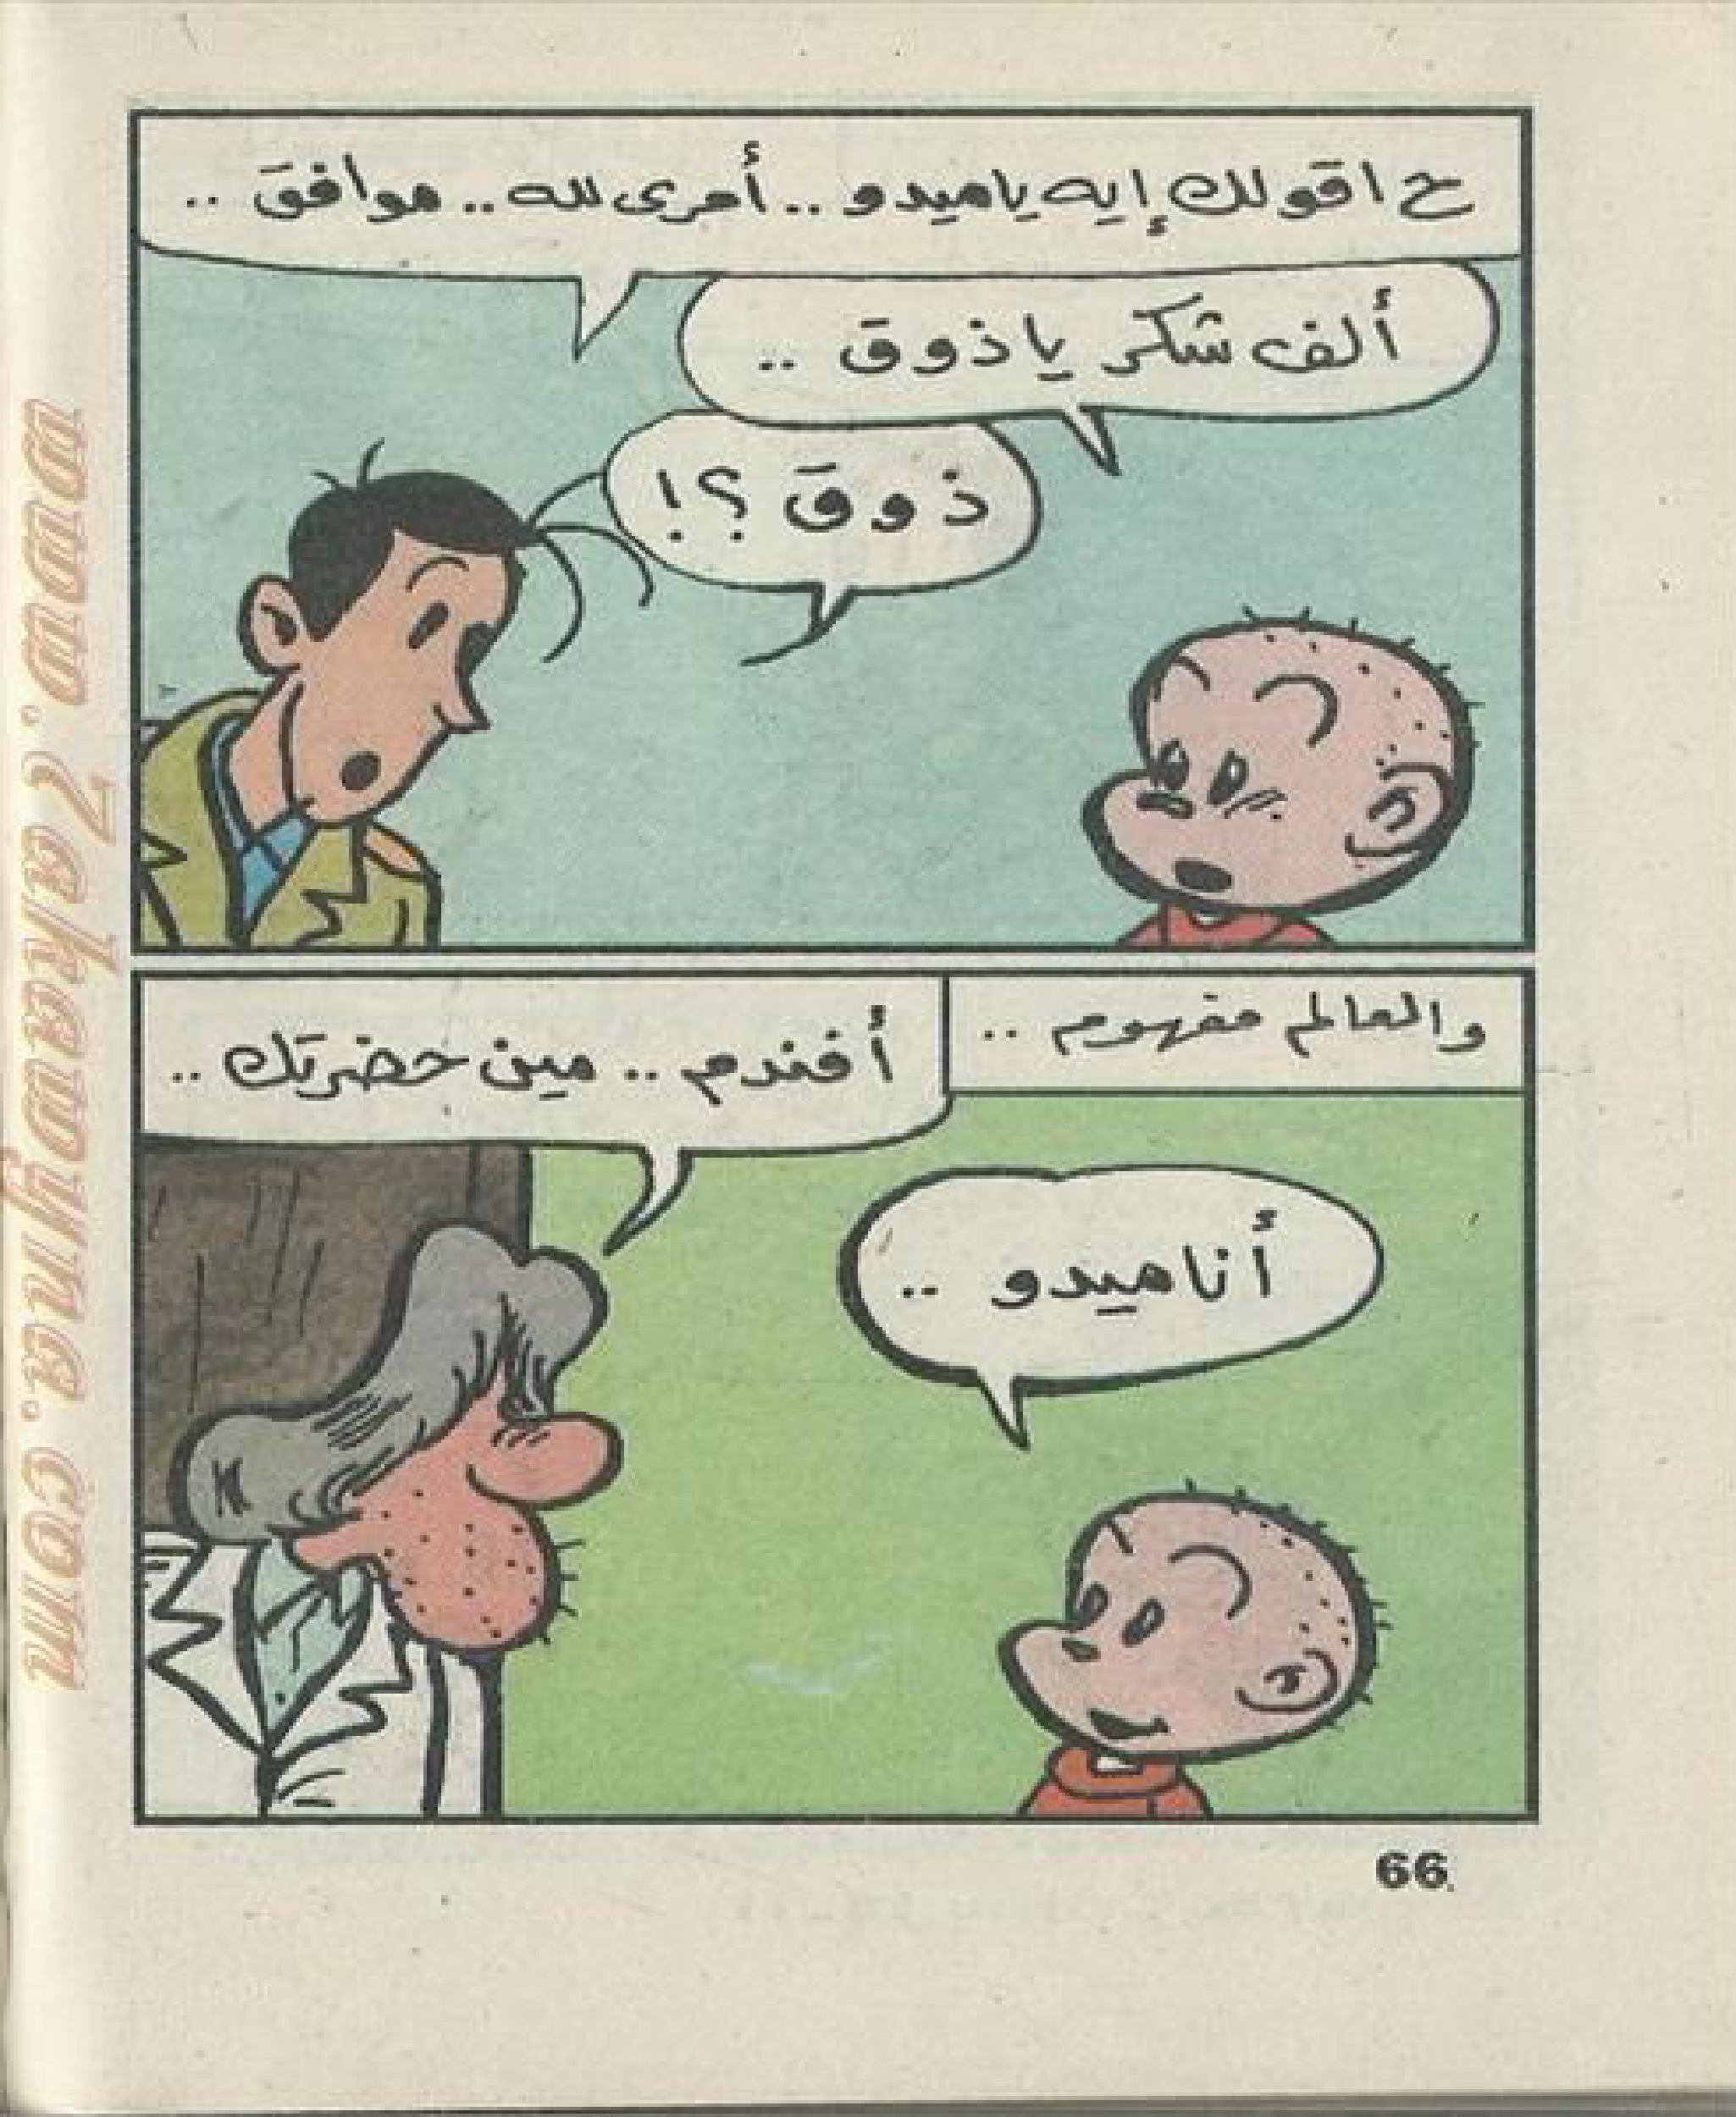 ح اقولك إيه ياميدو .. أمرى لله .. موافق ..
ألف شكر ياذوق ..
ذوق ؟!
والعالم مفهوم ..
أفندم .. مين حضرتك ..
أنا ميدو ..
66